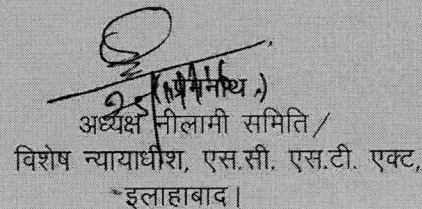 अध्यक्ष नीलामी समिति /
विशेष न्यायाधीश, एस.सी. एस.टी. एक्ट,
इलाहाबाद।